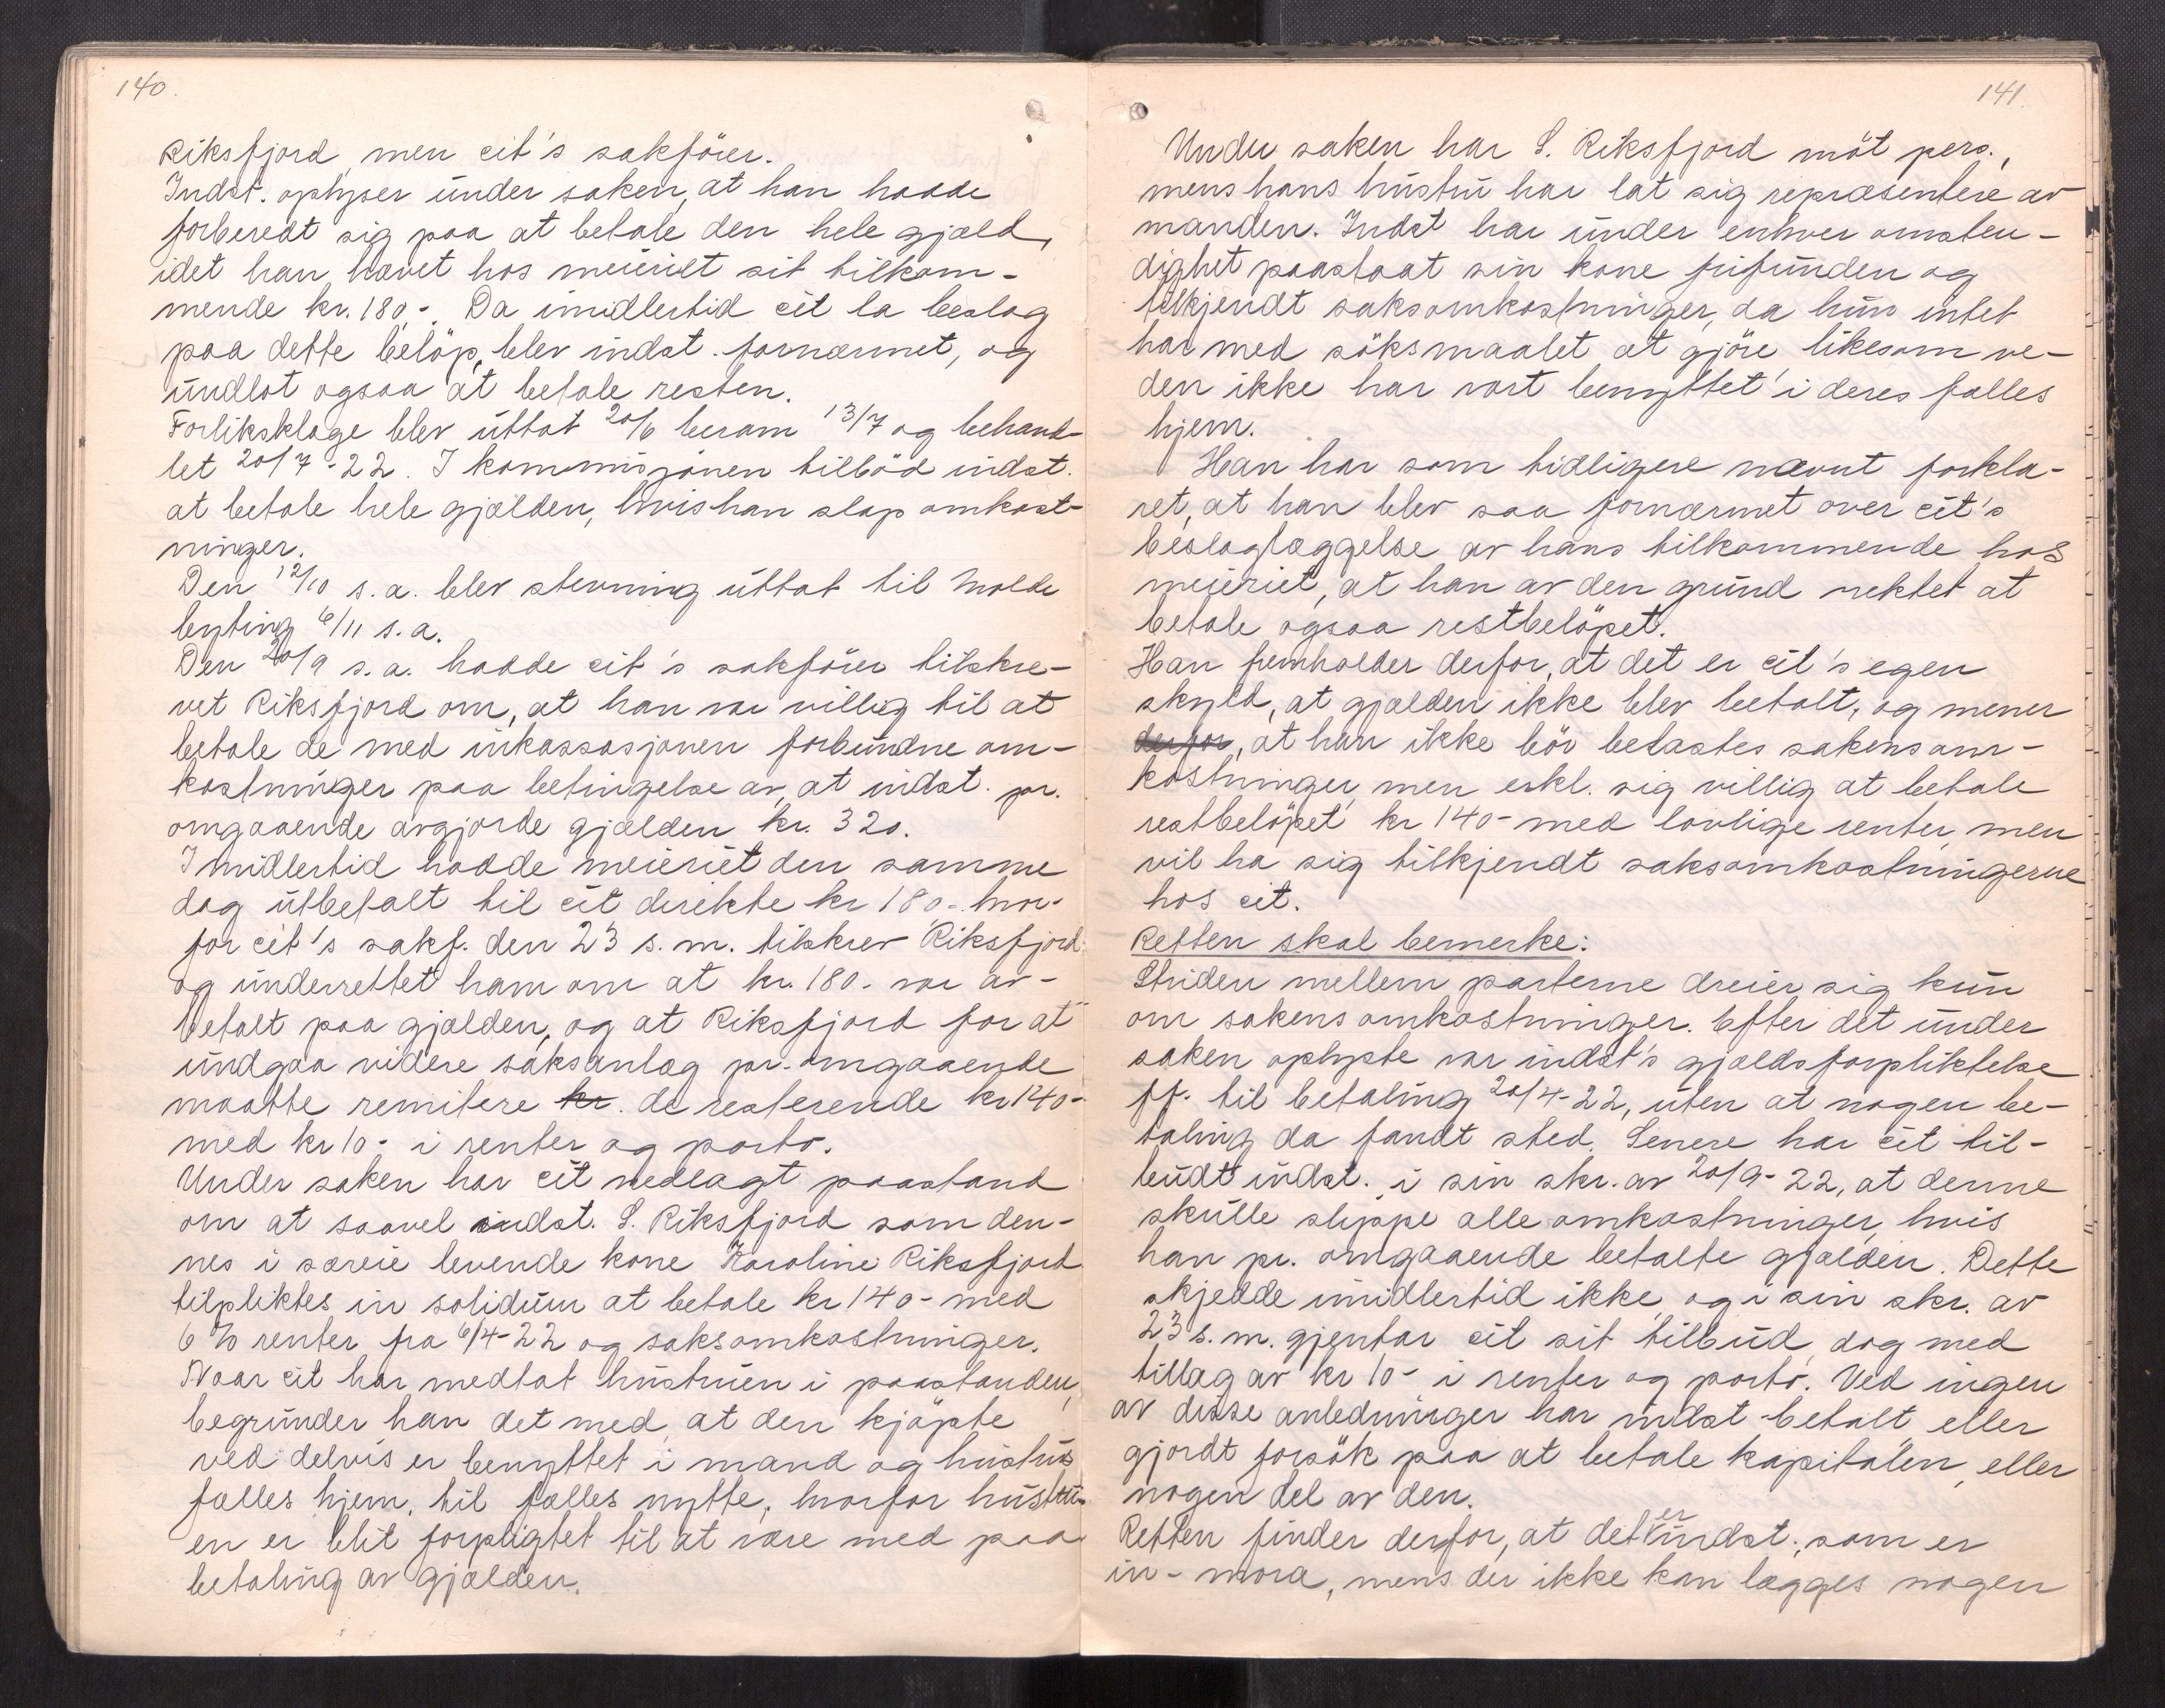 140.
Riksfjord, men cit's sakförer.
Indst. oplyser under saken, at han hadde
forberedt sig paa at betale den hele gjæld,
idet han hævet hos meieriet sit tilkom-
mende kr. 180,-. Da imidlertid cit la beslag
paa dette belöp, blev indst. fornærmet, og
undlot ogsaa at betale resten.
Forliksklage blev uttat 20/6 beram 13/7 og behand-
let 20/7-22. I kommisjonen tilböd indst.
at betale hele gjælden, hvis han slap omkost-
ninger.
Den 12/10 s.a. blev stevning uttat til Molde
byting 6/11 s.a.
Den 20/9 s.a. hadde cit's sakförer tilskre-
vet Riksfjord om, at han var villig til at
betale de med inkassasjonen forbundne om-
kostninger paa betingelse av, at indst. pr.
omgaaende avgjorde gjælden kr. 320.
Imidlertid hadde meieriet den samme
dag utbetalt til cit direkte kr 180,- hvor-
for cit's sakf. den 23 s.m. tilskrev Riksfjord
og underrettet ham om at kr. 180.- var av-
betalt paa gjælden, og at Riksfjord for at
undgaa videre saksanlag pr. omgaaende
maatte remitere kr. de resterende kr 140-
med kr 10- i renter og porto.
Under saken har cit nedlagt paastand
om at saavel indst. S. Riksfjord som den-
nes i særeie levende kone Karoline Riksfjord
tilpliktes in solidum at betale kr 140- med
6 % renter fra 6/4-22 og saksomkostninger.
Naar cit har medtat hustruen i paastanden,
begrunder han det med, at den kjöpte
ved delvis er benyttet i mand og hustrus
fælles hjem, til fælles nytte, hvorfor hustru-
en er blit forpligtet til at være med paa
betaling av gjælden.
141.
Under saken har S. Riksfjord möt pers.,
mens hans hustru har lat sig repræsentere av
manden. Indst har under enhver omsten-
dighet paastaat sin kone frifunden og
tilkjendt saksomkostninger, da hun intet
har med söksmaalet at gjöre, likesom ve-
den ikke har vært benyttet i deres fælles
hjem.
Han har som tidligere nævnt forkla-
ret, at han blev saa fornærmet over cit's
beslaglæggelse av hans tilkommende hos
meieriet, at han av den grund nektet at
betale ogsaa restbelöpet.
Han fremholder derfor, at det er cit's egen
skyld, at gjælden ikke blev betalt, og mener
derfor, at han ikke bör belastes sakensom-
kostninger, men erkl. sig villig at betale
restbelöpet kr 140- med lovlige renter, men
vil ha sig tilkjendt saksomkostningerne
hos cit.
Retten skal bemerke:
Striden mellem parterne dreier sig kun
om sakens omkostninger. Efter det under
saken oplyste var indst's gjældsforpliktelse
ff. til betaling 20/4-22, uten at nogen be-
taling da fandt sted. Senere har cit til-
budt indst. i sin skr. av 20/9-22, at denne
skulle slippe alle omkostninger, hvis
han pr. omgaaende betalte gjælden. Dette
skjedde imidlertid ikke, og i sin skr. av
23 s.m. gjentar cit sit tilbud, dog med
tillæg av kr 10- i renter og porto. Ved ingen
av disse anledninger har indst betalt, eller
gjordt forsök paa at betale kapitalen, eller
nogen del av den.
Retten finder derfor, at det er indst., som er
in-mora, mens der ikke kan lægges nogen